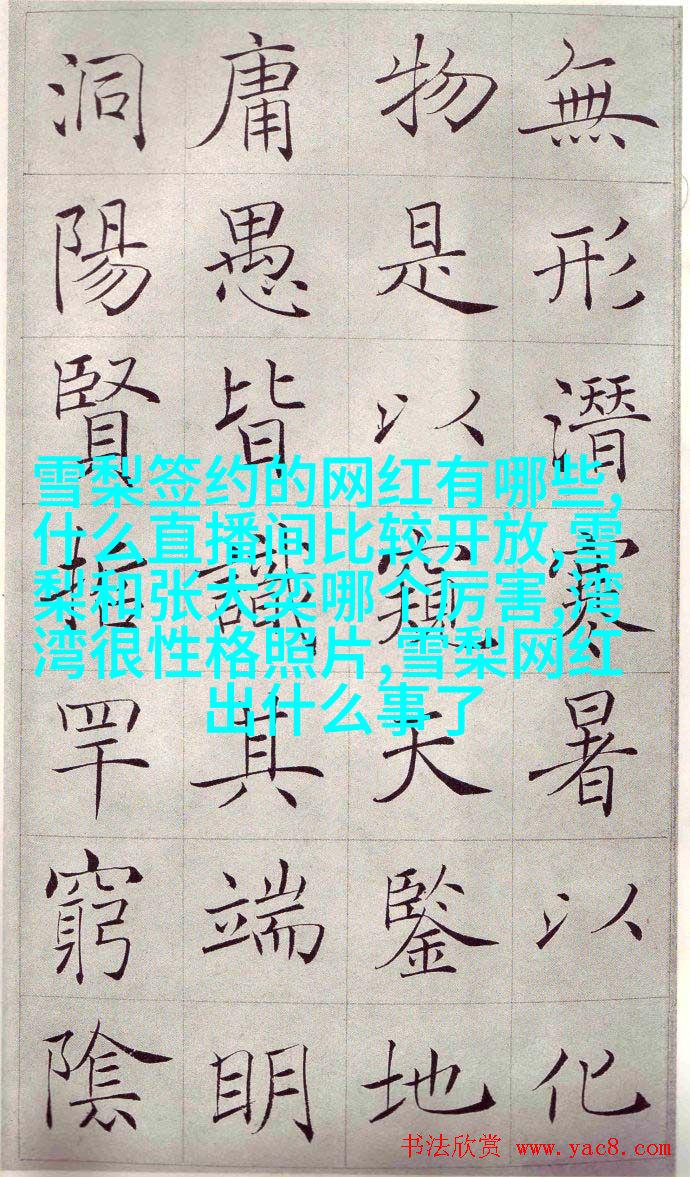 無形潛寒暑以化
物是以窺天鑒地
庸愚皆識其端明
洞陽賢哲罕窮陰
雪梨签约的网红有哪些,
什么直播间比较开放,雪
梨和张大奕哪个厉害,湾
湾很性格照片,雪梨网红
出什么事了
书法欣赏 www.yac8.com